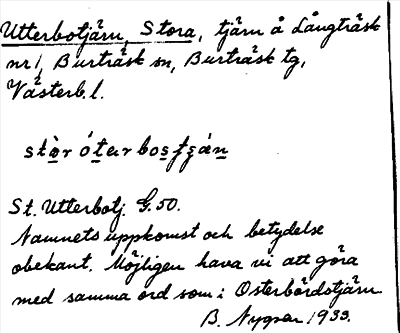 Utterbotjärn, Stora, tjärn å Långträsk
nr 1, Burträsk sn, Burträsk tg,
Västerb. l.
stòr óterbosţşán
St. Utterbotj. G. 50.
Namnets uppkomst och betydelse
obekant. Möjligen hava vi att göra
med samma ord som i Osterbördstjärn
B. Nygren 1933.